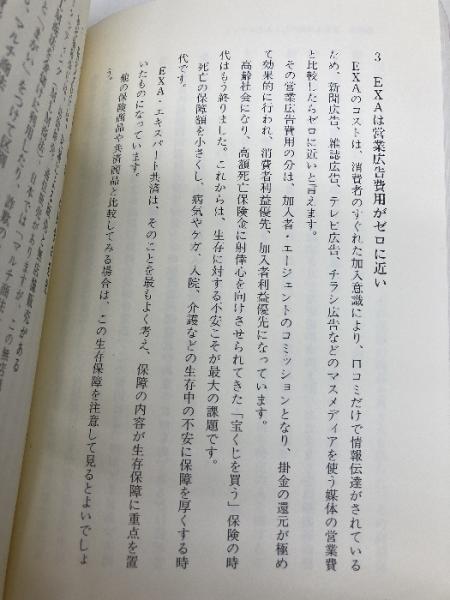 3 EXAは営業広告費用がゼロに近い
EXAのコストは、消費者のすぐれた加入意識により、口コミだけで情報伝達がされている
ため、新聞広告、雑誌広告、テレビ広告、チラシ広告などのマスメディアを使う媒体の営業費
と比較したらゼロに近いと言えます。
その営業広告費用の分は、加入者・エージェントのコミッションとなり、掛金の還元が極め
て効果的に行われ、消費者利益優先、加入者利益優先になっています。
高齢社会になり、高額死亡保険金に射倖心を向けさせられてきた「宝くじを買う」保険の時
代はもう終りました。これからは、生存に対する不安こそが最大の課題です。
死亡の保障額を小さくし、病気やケガ、入院、介護などの生存中の不安に保障を厚くする時
代です。
EXA・エキスパート共済は、そのことを最もよく考え、保障の内容が生存保障に重点を置
いたものになっています。
他の保険商品や共済商品と比較してみる場合は、この生存保障を注意して見るとよいでしょ
う。